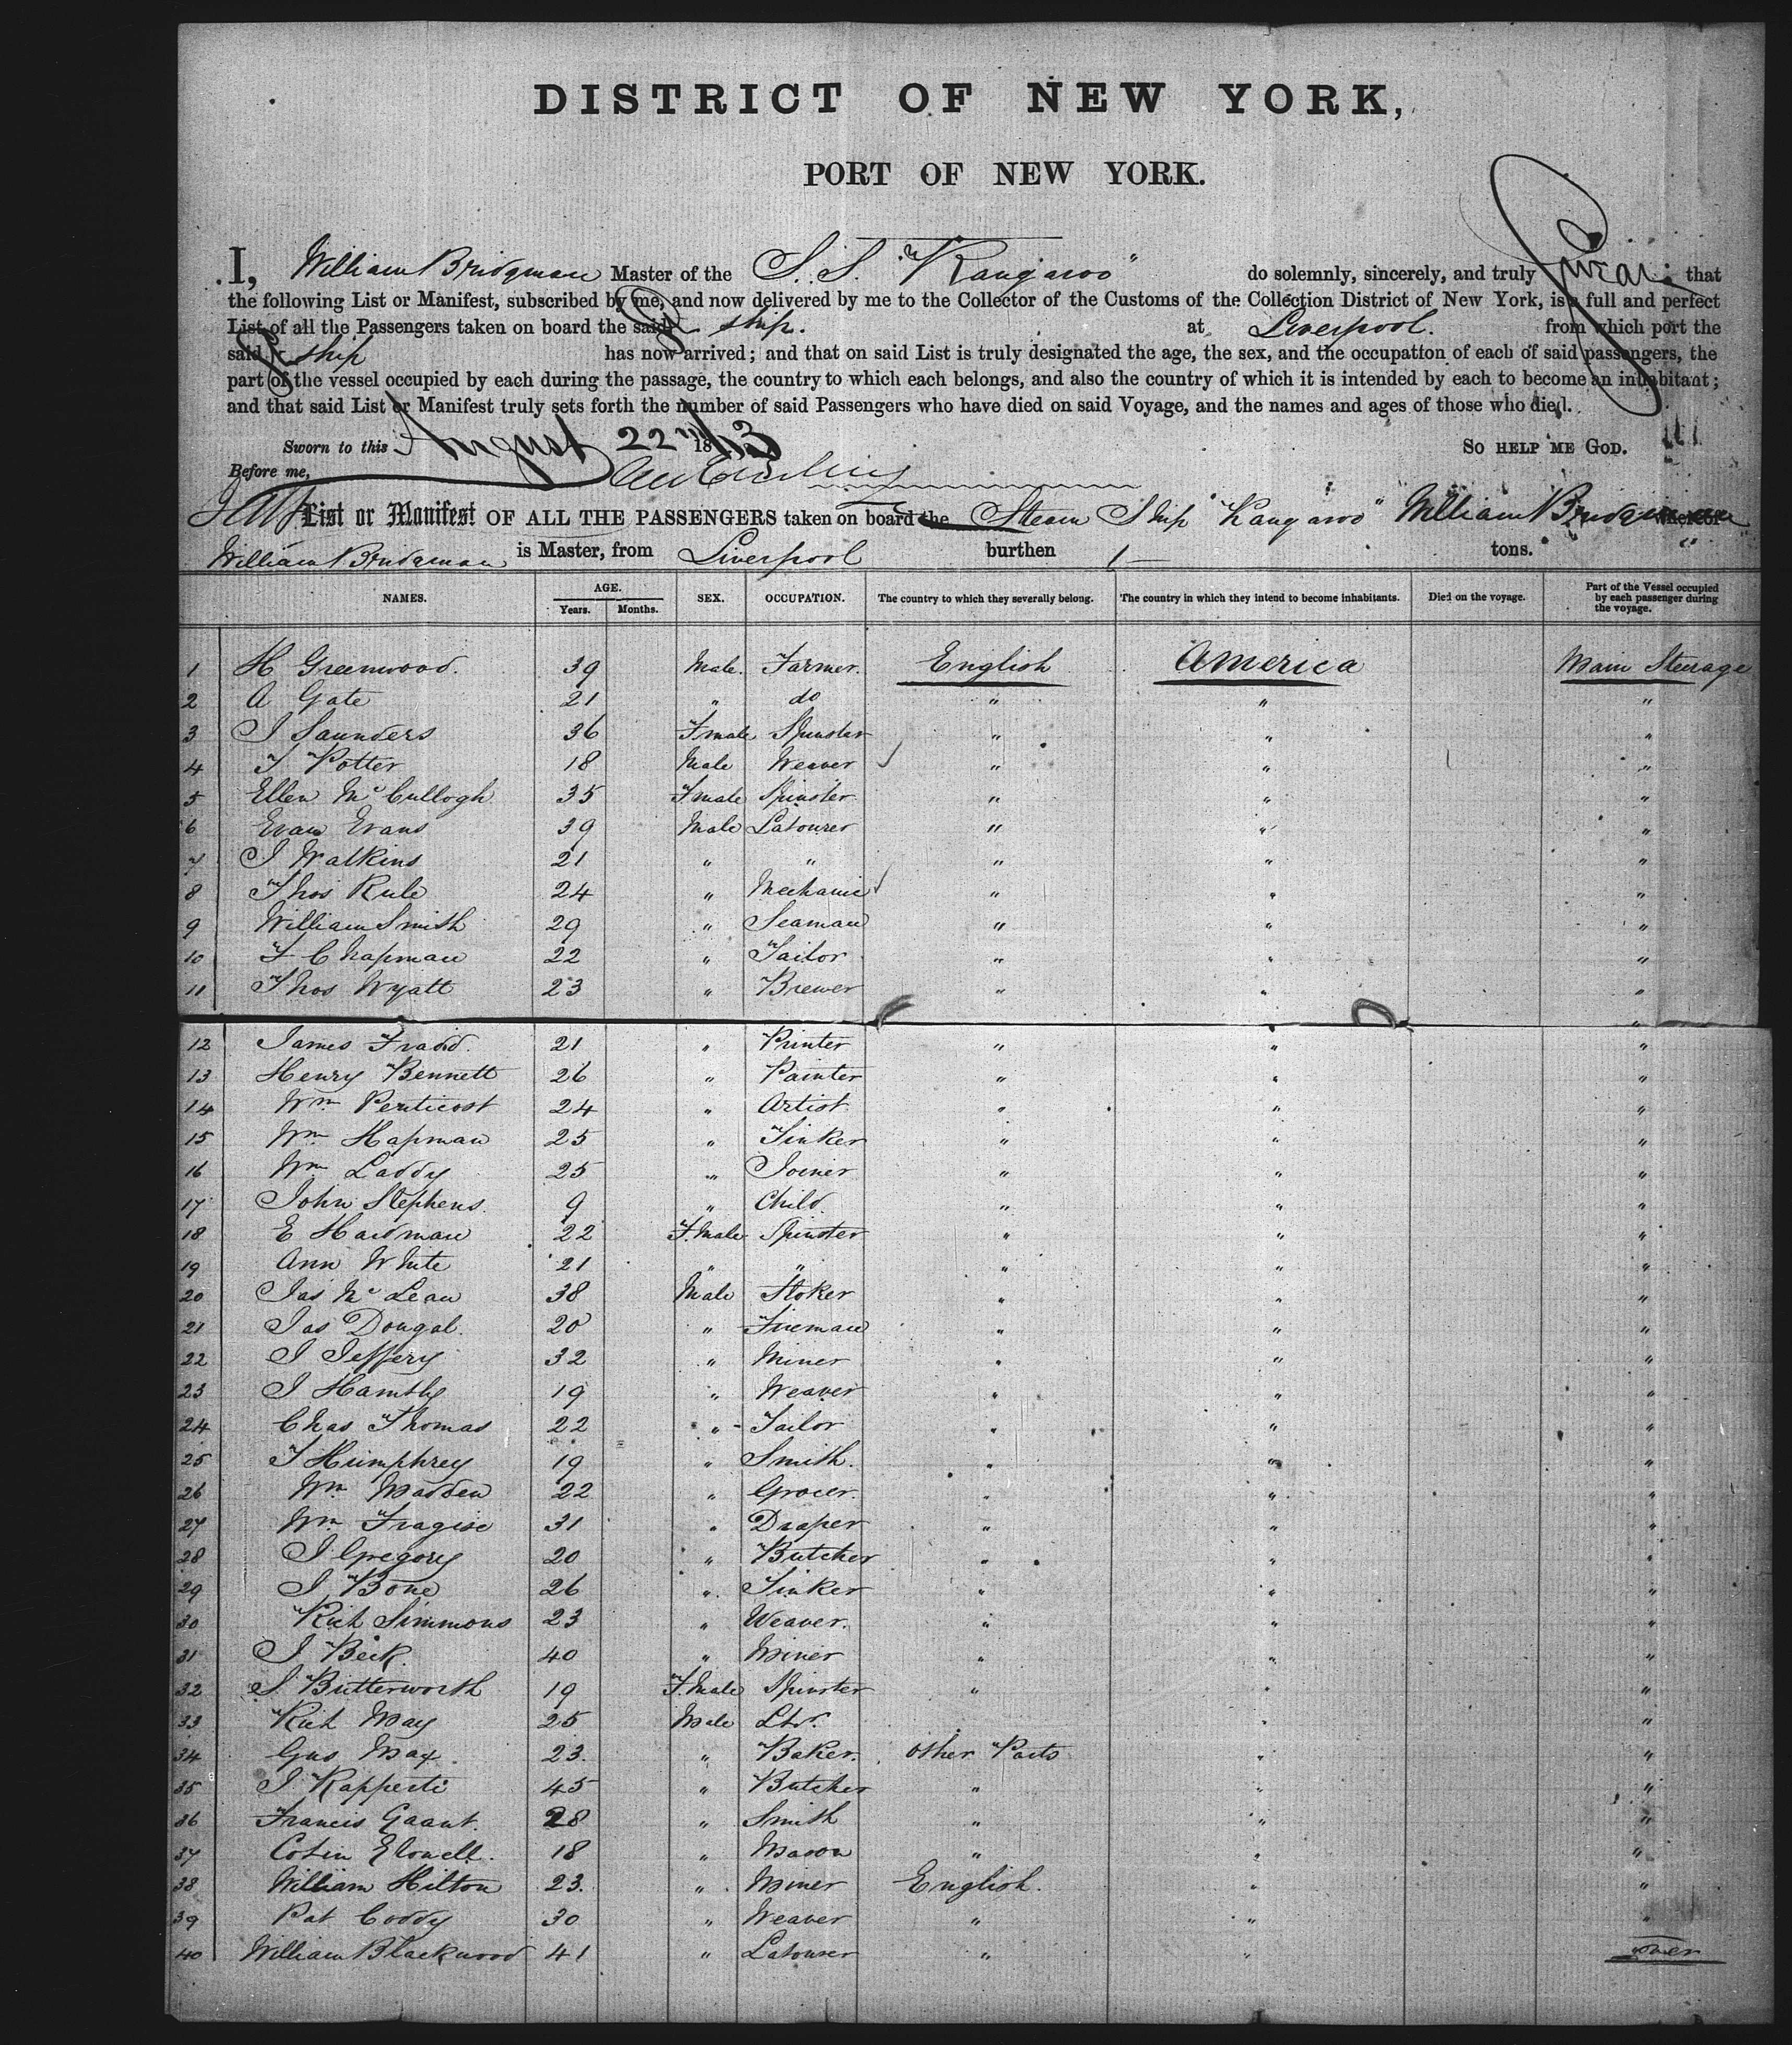 DISTRICT OF NEW YORK,
PORT OF NEW YORK.
I, William Bridgman Master of the S.S. "Kangaroo" do solemnly, sincerely, and truly swear that
the following List or Manifest, subscribed by me, and now delivered by me to the Collector of the Customs of the Collection District of New York, is a full and perfect
List of all the Passengers taken on board the said ship. at Liverpool. from which port the
said ship has now arrived; and that on said List is truly designated the age, the sex, and the occupation of each of said passengers, the
part of the vessel occupied by each during the passage, the country to which each belongs, and also the country of which it is intended by each to become an inhabitant;
and that said List or Manifest truly sets forth the number of said Passengers who have died on said Voyage, and the names and ages of those who died.
Sworn to this August 22nd 18 SO HELP ME GOD.
Before me,
List or Manifest OF ALL THE PASSENGERS taken on board the Steam Ship "Kangaroo" William Bridgman whereof
William Bridgman is Master, from Liverpool burthen tons.
NAMES. AGE. Years. Months. SEX. OCCUPATION. The country to which they severally belong. The country in which they intend to become inhabitants. Died on the voyage. Part of the Vessel occupied by each passenger during the voyage.
1 H Greenwood. 39 Male. Farmer. English America Main Steerage
2 A Gate 21 " do " " "
3 J Saunders 36 Fmale Spinster " " "
4 T Potter 18 Male Weaver " " "
5 Ellen McCullogh 35 Fmale Spinster " " "
6 Evan Evans 39 Male Labourer " " "
7 J Watkins 21 " " " " "
8 Thos Rule 24 " Mechanic " " "
9 William Smith 29 " Seaman " " "
10 F Chapman 22 " Tailor " " "
11 Thos Wyatt 23 " Brewer " " "
12 James Fradd. 21 " Printer " " "
13 Henry Bennett 26 " Painter " " "
14 Wm Penticost 24 " Artist " " "
15 Wm Hapman 25 " Tinker " " "
16 Wm Laddy 25 " Joiner " " "
17 John Stephens. 9 " Child " " "
18 E Hardman 22 F.male Spinster " " "
19 Ann White 21 " " " " "
20 Jas McLean 38 Male Stoker " " "
21 Jas Dougal. 20 " Fireman " " "
22 J Jeffery 32 " Miner " " "
23 J Hambly 19 " Weaver " " "
24 Chas Thomas 22 " Tailor " " "
25 J Humphrey 19 " Smith. " " "
26 Wm Madden 22 " Grocer. " " "
27 Wm 31 " Draper " " "
28 J Gregory 20 " Butcher " " "
29 J Bone 26 " Tinker " " "
30 Rich Simmons 23 " Weaver. " " "
31 J Beck 40 " Miner " " "
32 S. Butterworth 19 F.male Spinster " " "
33 Rich May 25 Male Lbr. " " "
34 Gus May 23. " Baker. Other Parts " "
35 J Rapperti 45 " Butcher " " "
36 Francis Gaant. 28 " Smith " " "
37 18 " Mason " " "
38 William Hilton 23. " Miner English. " "
39 Pat Coddy 30 " Weaver " " "
40 William Blackwood 41 " Labourer " " over